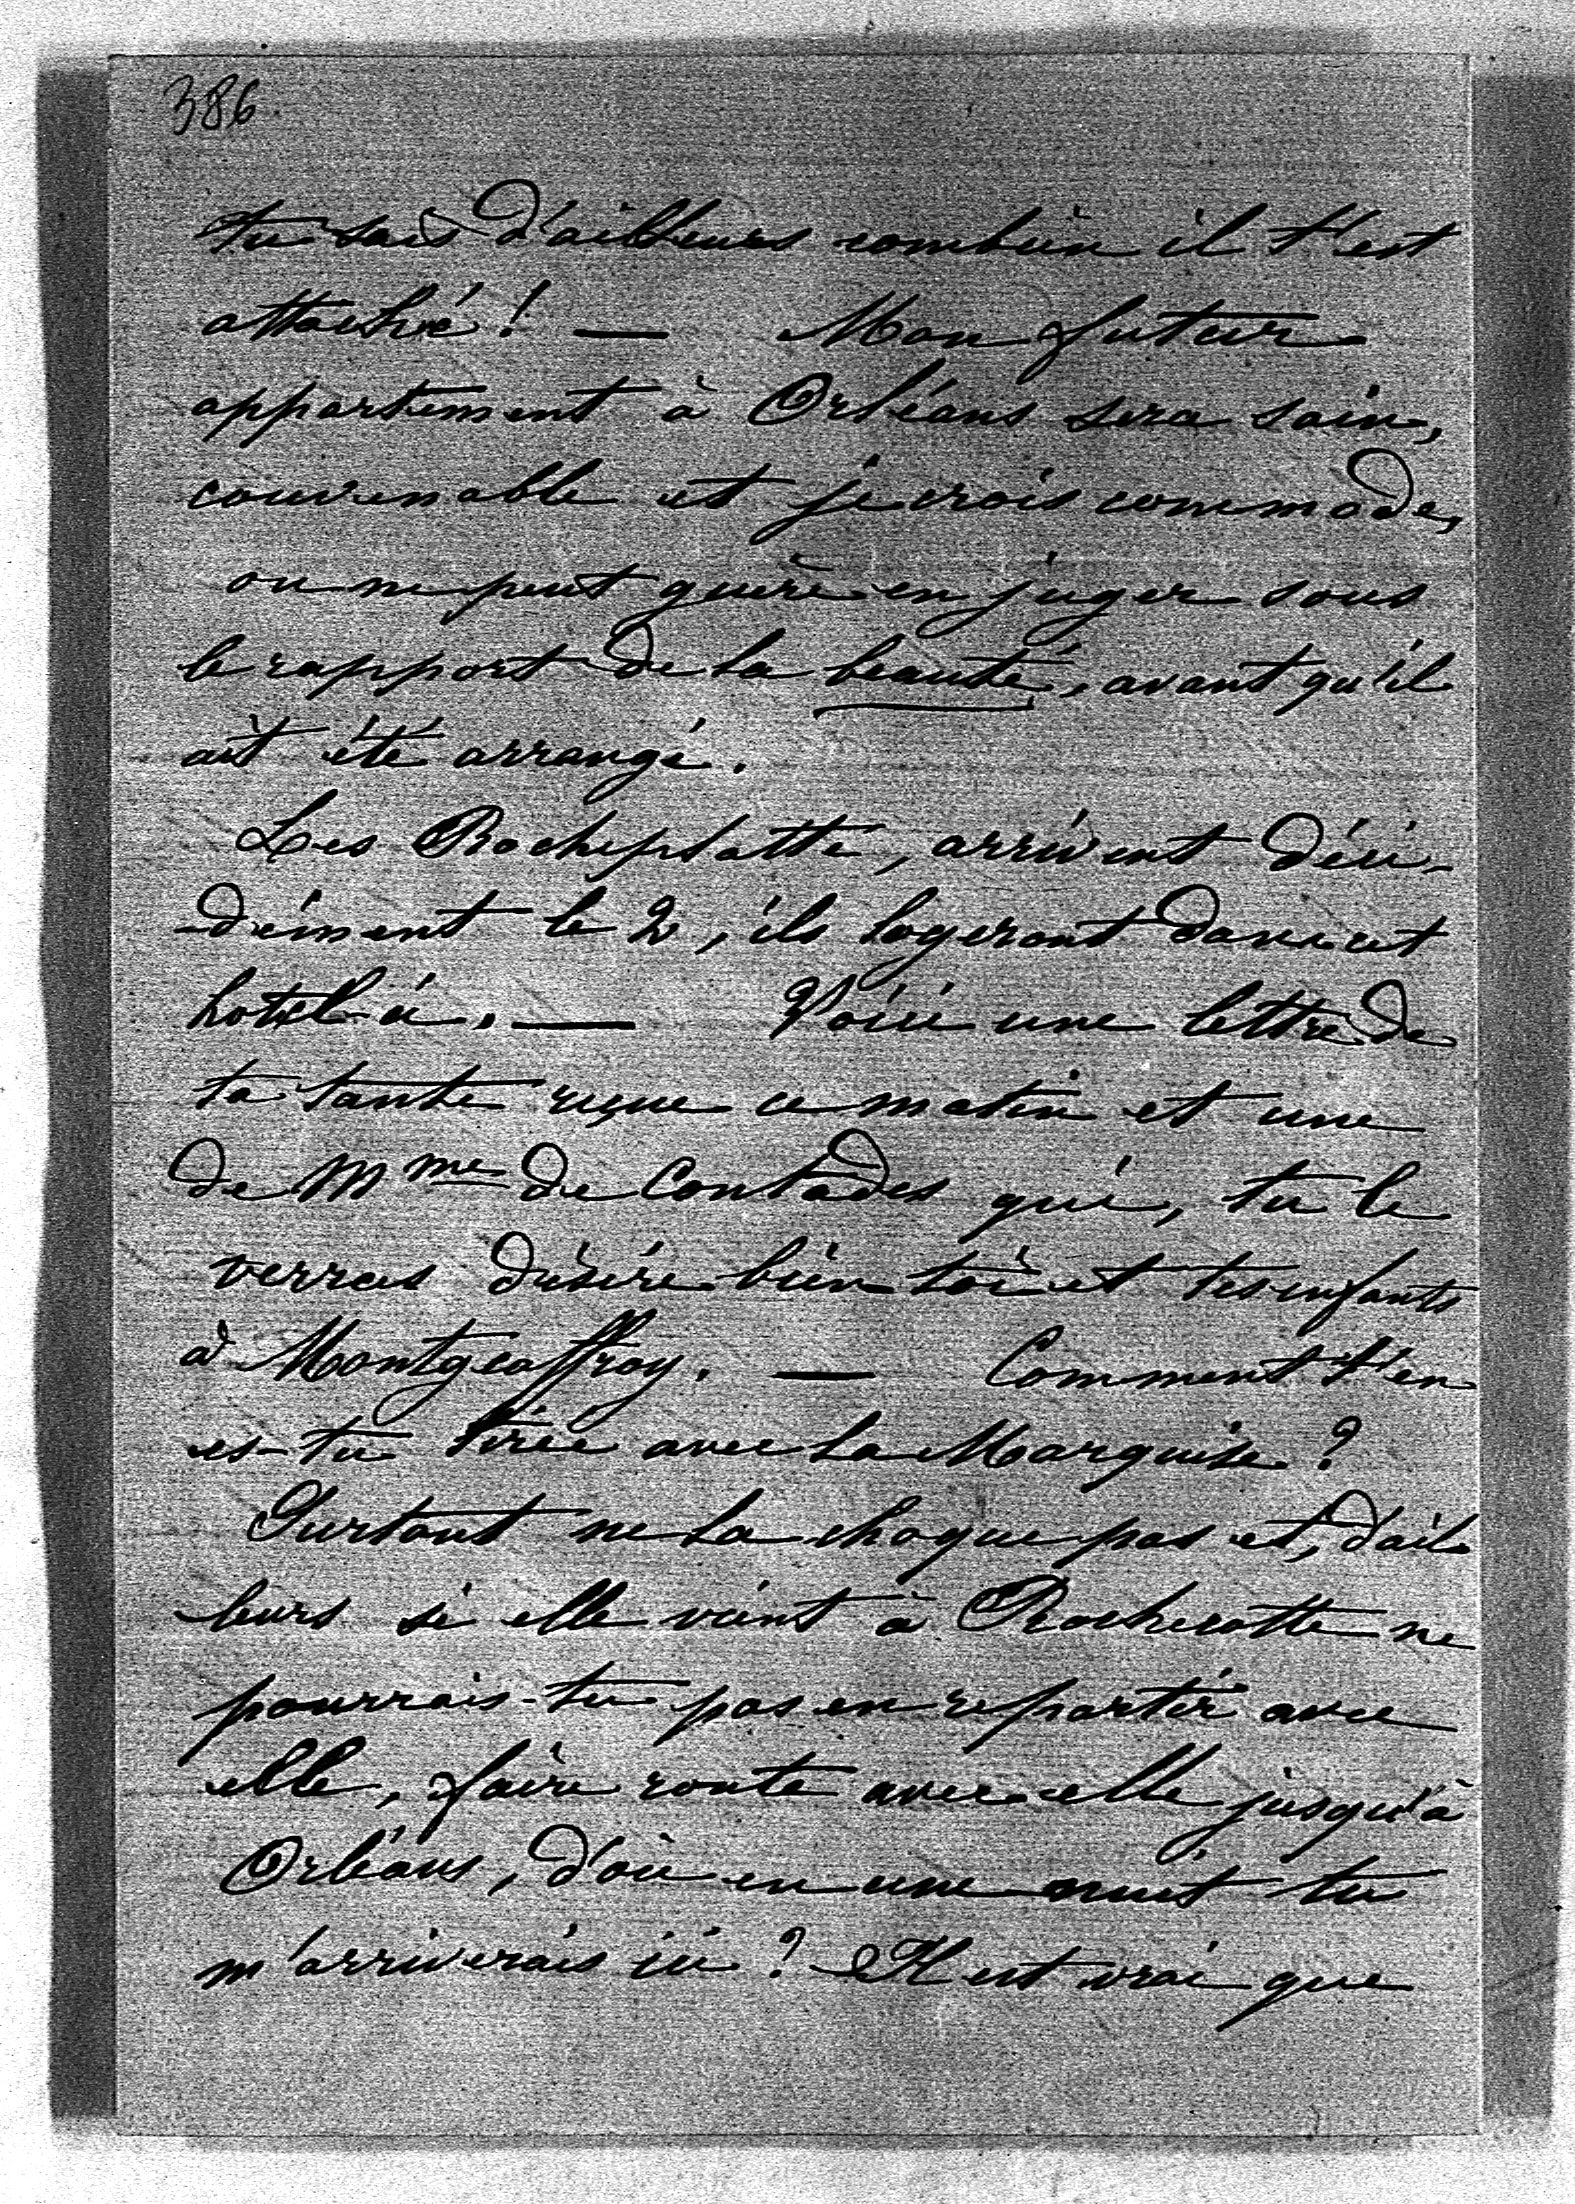 386.
tu sais d'ailleurs combien il t'est
attaché ! — Mon futur
appartement à Orléans sera sain,
convenable et je crois commode,
on ne peut guère en juger sous
le rapport de la beauté, avant qu'il
ait été arrangé.
Les Rocheplatte, arrivent déci-
-dément le 2, ils logeront dans cet
hotel-ci. — Voici une lettre de
ta tante reçue ce matin et une
de Mme de Contades qui, tu le
verras désire bien toi et tes enfants
à Montgeoffroy. — Comment t'en
es-tu tirée avec la Marquise ?
Surtout ne la choque pas et, d'ail-
leurs si elle vient à Rochecotte ne
pourrais-tu pas en repartir avec
elle, faire route avec elle jusqu'à
Orléans, d'où en une nuit tu
m'arriverais ici ? Il est vrai que